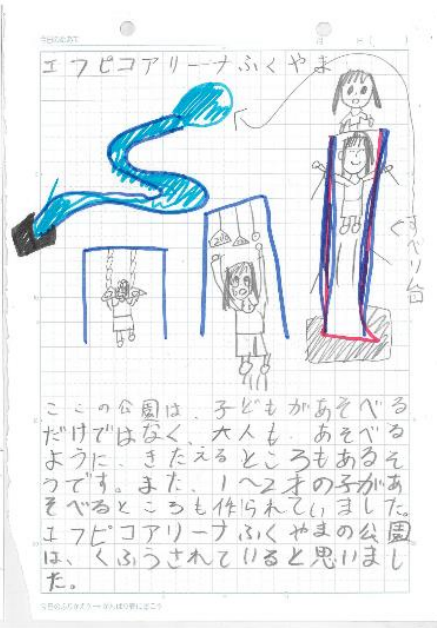 エフピコアリーナふくやま
すべり台
ここの公園は、子どもがあそべる
だけではなく、大人も、あそべる
ように、きたえるところもあるそ
うです。また、1〜2才の子があ
そべるところも作られていました。
エフピコアリーナふくやまの公園
は、くふうされていると思いまし
た。